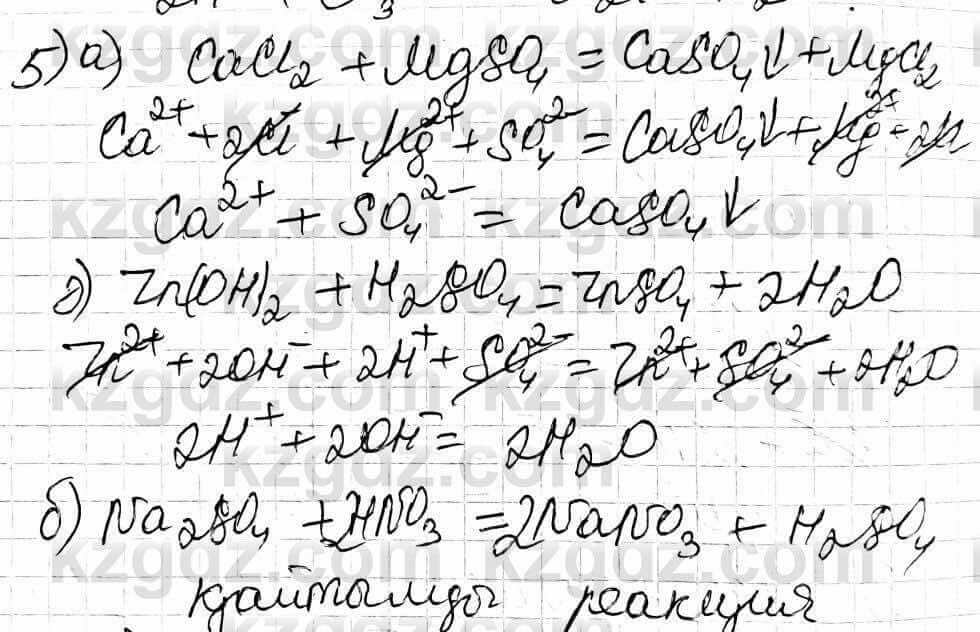 5) а) CaCl₂ + MgSO₄ = CaSO₄↓ + MgCl₂
Ca²⁺ + 2Cl⁻ + Mg²⁺ + SO₄²⁻ = CaSO₄↓ + Mg²⁺ + 2Cl
Ca²⁺ + SO₄²⁻ = CaSO₄↓
д) Zn(OH)₂ + H₂SO₄ = ZnSO₄ + 2H₂O
Zn²⁺ + 2OH⁻ + 2H⁺ + SO₄²⁻ = Zn²⁺ + SO₄²⁻ + 2H₂O
2H⁺ + 2OH⁻ = 2H₂O
б) Na₂SO₄ + 2HNO₃ = 2NaNO₃ + H₂SO₄
қайтымды реакция
kzgdz.com